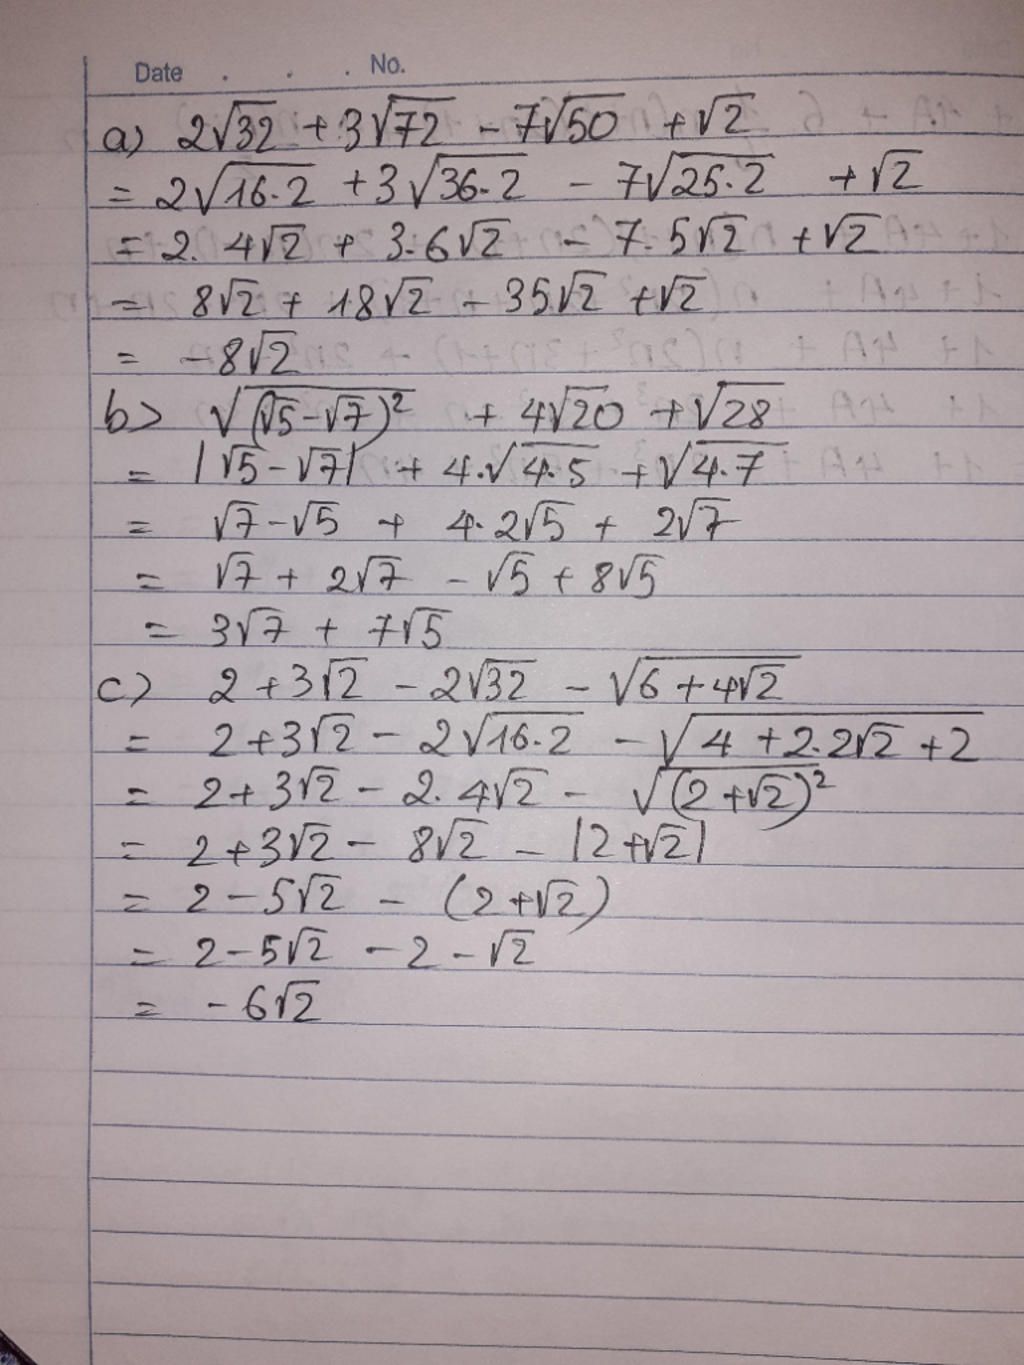 Date . . . No.
a) 2√32 + 3√72 - 7√50 + √2
= 2√16.2 + 3√36.2 - 7√25.2 + √2
= 2. 4√2 + 3.6√2 - 7.5√2 + √2
= 8√2 + 18√2 - 35√2 + √2
= -8√2
b) √(√5-√7)² + 4√20 + √28
= |√5-√7| + 4.√4.5 + √4.7
= √7-√5 + 4.2√5 + 2√7
= √7 + 2√7 - √5 + 8√5
= 3√7 + 7√5
c) 2+3√2 - 2√32 - √6+4√2
= 2+3√2 - 2√16.2 - √4+2.2√2+2
= 2+3√2 - 2.4√2 - √(2+√2)²
= 2+3√2 - 8√2 - |2+√2|
= 2-5√2 - (2+√2)
= 2-5√2 - 2-√2
= -6√2